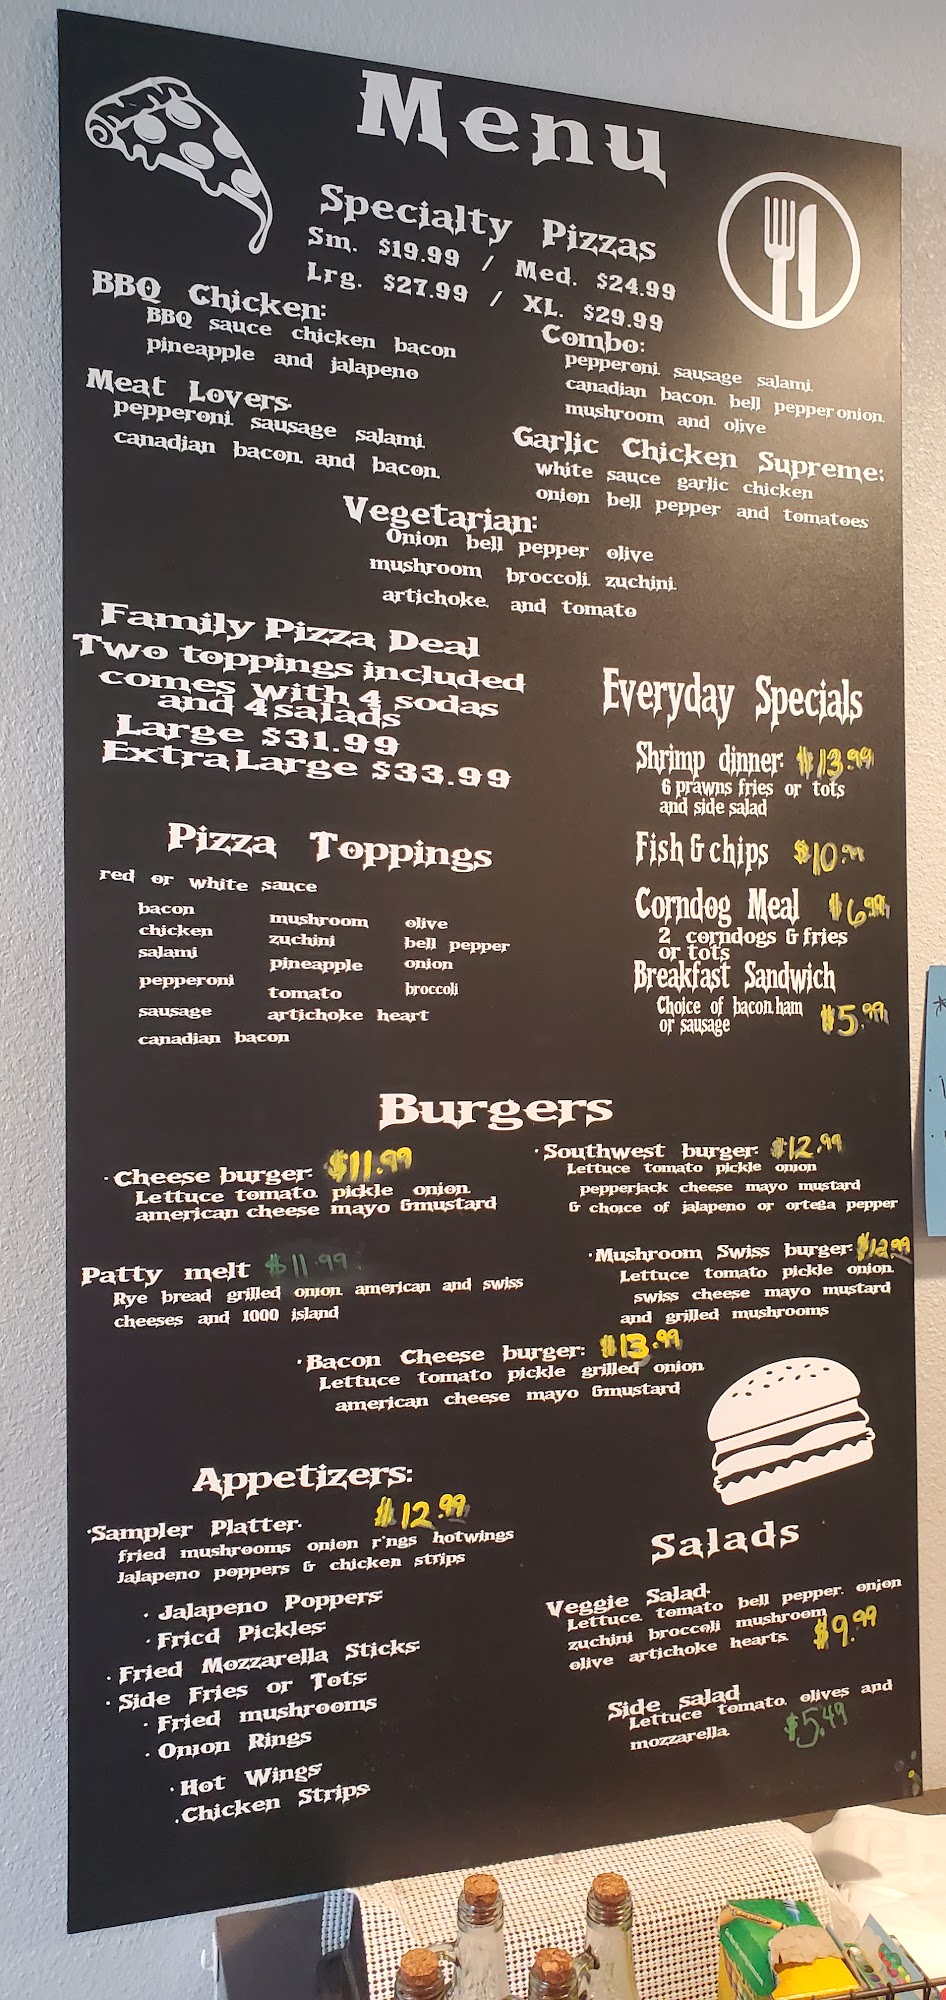 Menu
Specialty Pizzas
Sm. $19.99 / Med. $24.99
Lrg. $27.99 / XL. $29.99
BBQ Chicken:
BBQ sauce chicken bacon
pineapple and jalapeno
Meat Lovers.
pepperoni. sausage salami.
canadian bacon. and bacon.
Combo:
pepperoni. sausage salami.
canadian bacon. bell pepper onion.
mushroom and olive
Garlic Chicken Supreme:
white sauce garlic chicken
onion bell pepper and tomatoes
Vegetarian:
Onion bell pepper olive
mushroom broccoli. zuchini.
artichoke. and tomato
Family Pizza Deal
Two toppings included
comes with 4 sodas
and 4 salads
Large $31.99
Extra Large $33.99
Everyday Specials
Shrimp dinner: $13.99
6 prawns fries or tots
and side salad
Fish & chips $10.99
Corndog Meal $6.99
2 corndogs & fries
or tots
Breakfast Sandwich
Choice of bacon.ham
or sausage $5.99
Pizza Toppings
red or white sauce
bacon
chicken
salami
pepperoni
sausage
canadian bacon
mushroom
zuchini
pineapple
tomato
artichoke heart
olive
bell pepper
onion
broccoli
Burgers
·Cheese burger: $11.99
Lettuce tomato. pickle onion.
american cheese mayo &mustard
·Southwest burger: $12.99
Lettuce tomato pickle onion
pepperjack cheese mayo mustard
& choice of jalapeno or ortega pepper
Patty melt $11.99
Rye bread grilled onion. american and swiss
cheeses and 1000 island
·Mushroom Swiss burger: $12.99
Lettuce tomato pickle onion.
swiss cheese mayo mustard
and grilled mushrooms
·Bacon Cheese burger: $13.99
Lettuce tomato pickle grilled onion
american cheese mayo &mustard
Appetizers:
·Sampler Platter. $12.99
fried mushrooms onion rings hotwings
Jalapeno poppers & chicken strips
· Jalapeno Poppers
· Fried Pickles
· Fried Mozzarella Sticks
· Side Fries or Tots
· Fried mushrooms
· Onion Rings
· Hot Wings
·Chicken Strips
Salads
Veggie Salad
Lettuce. tomato bell pepper. onion
zuchini broccoli mushroom
olive artichoke hearts. $9.99
Side salad
Lettuce tomato. olives and
mozzarella $5.49